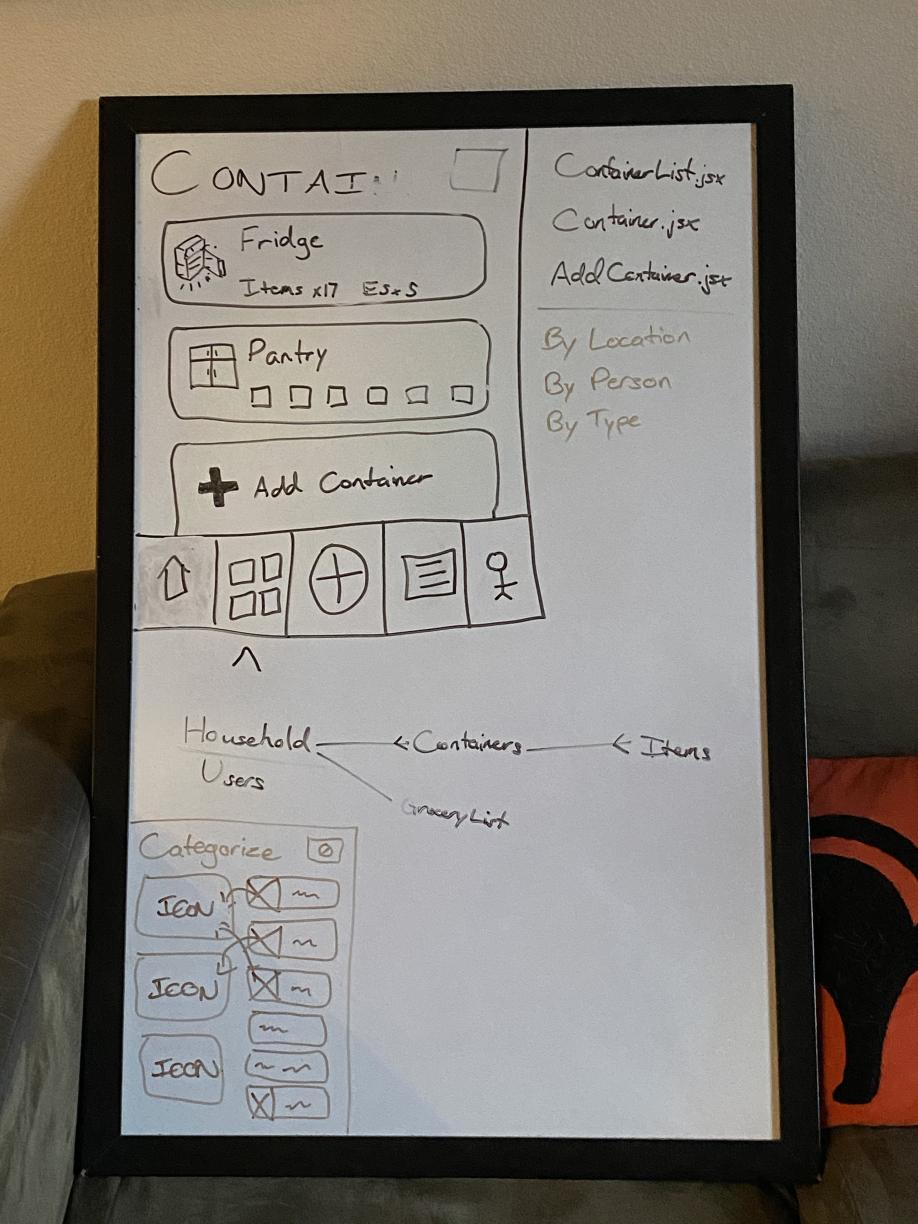 CONTAI
Fridge
Items x17
Pantry
Add Container
ContainerList.jsx
Container.jsx
AddContainer.jsx
By Location
By Person
By Type
Household
Users
Containers
Items
GroceryList
Categorize
ICON
ICON
ICON